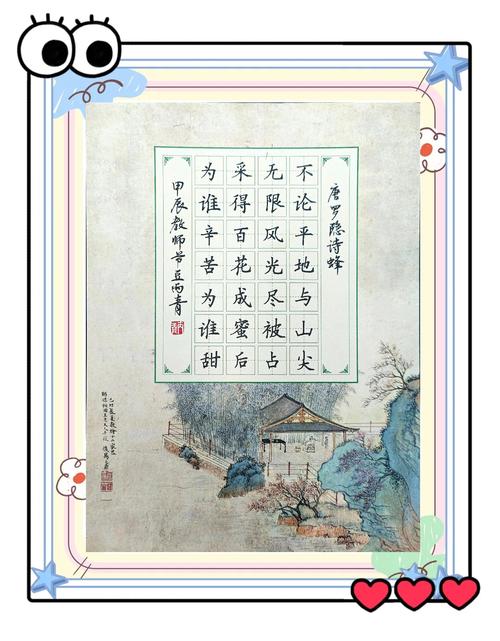 唐罗隐诗蜂
不论平地与山尖
无限风光尽被占
采得百花成蜜后
为谁辛苦为谁甜
甲辰教师节豆雨青